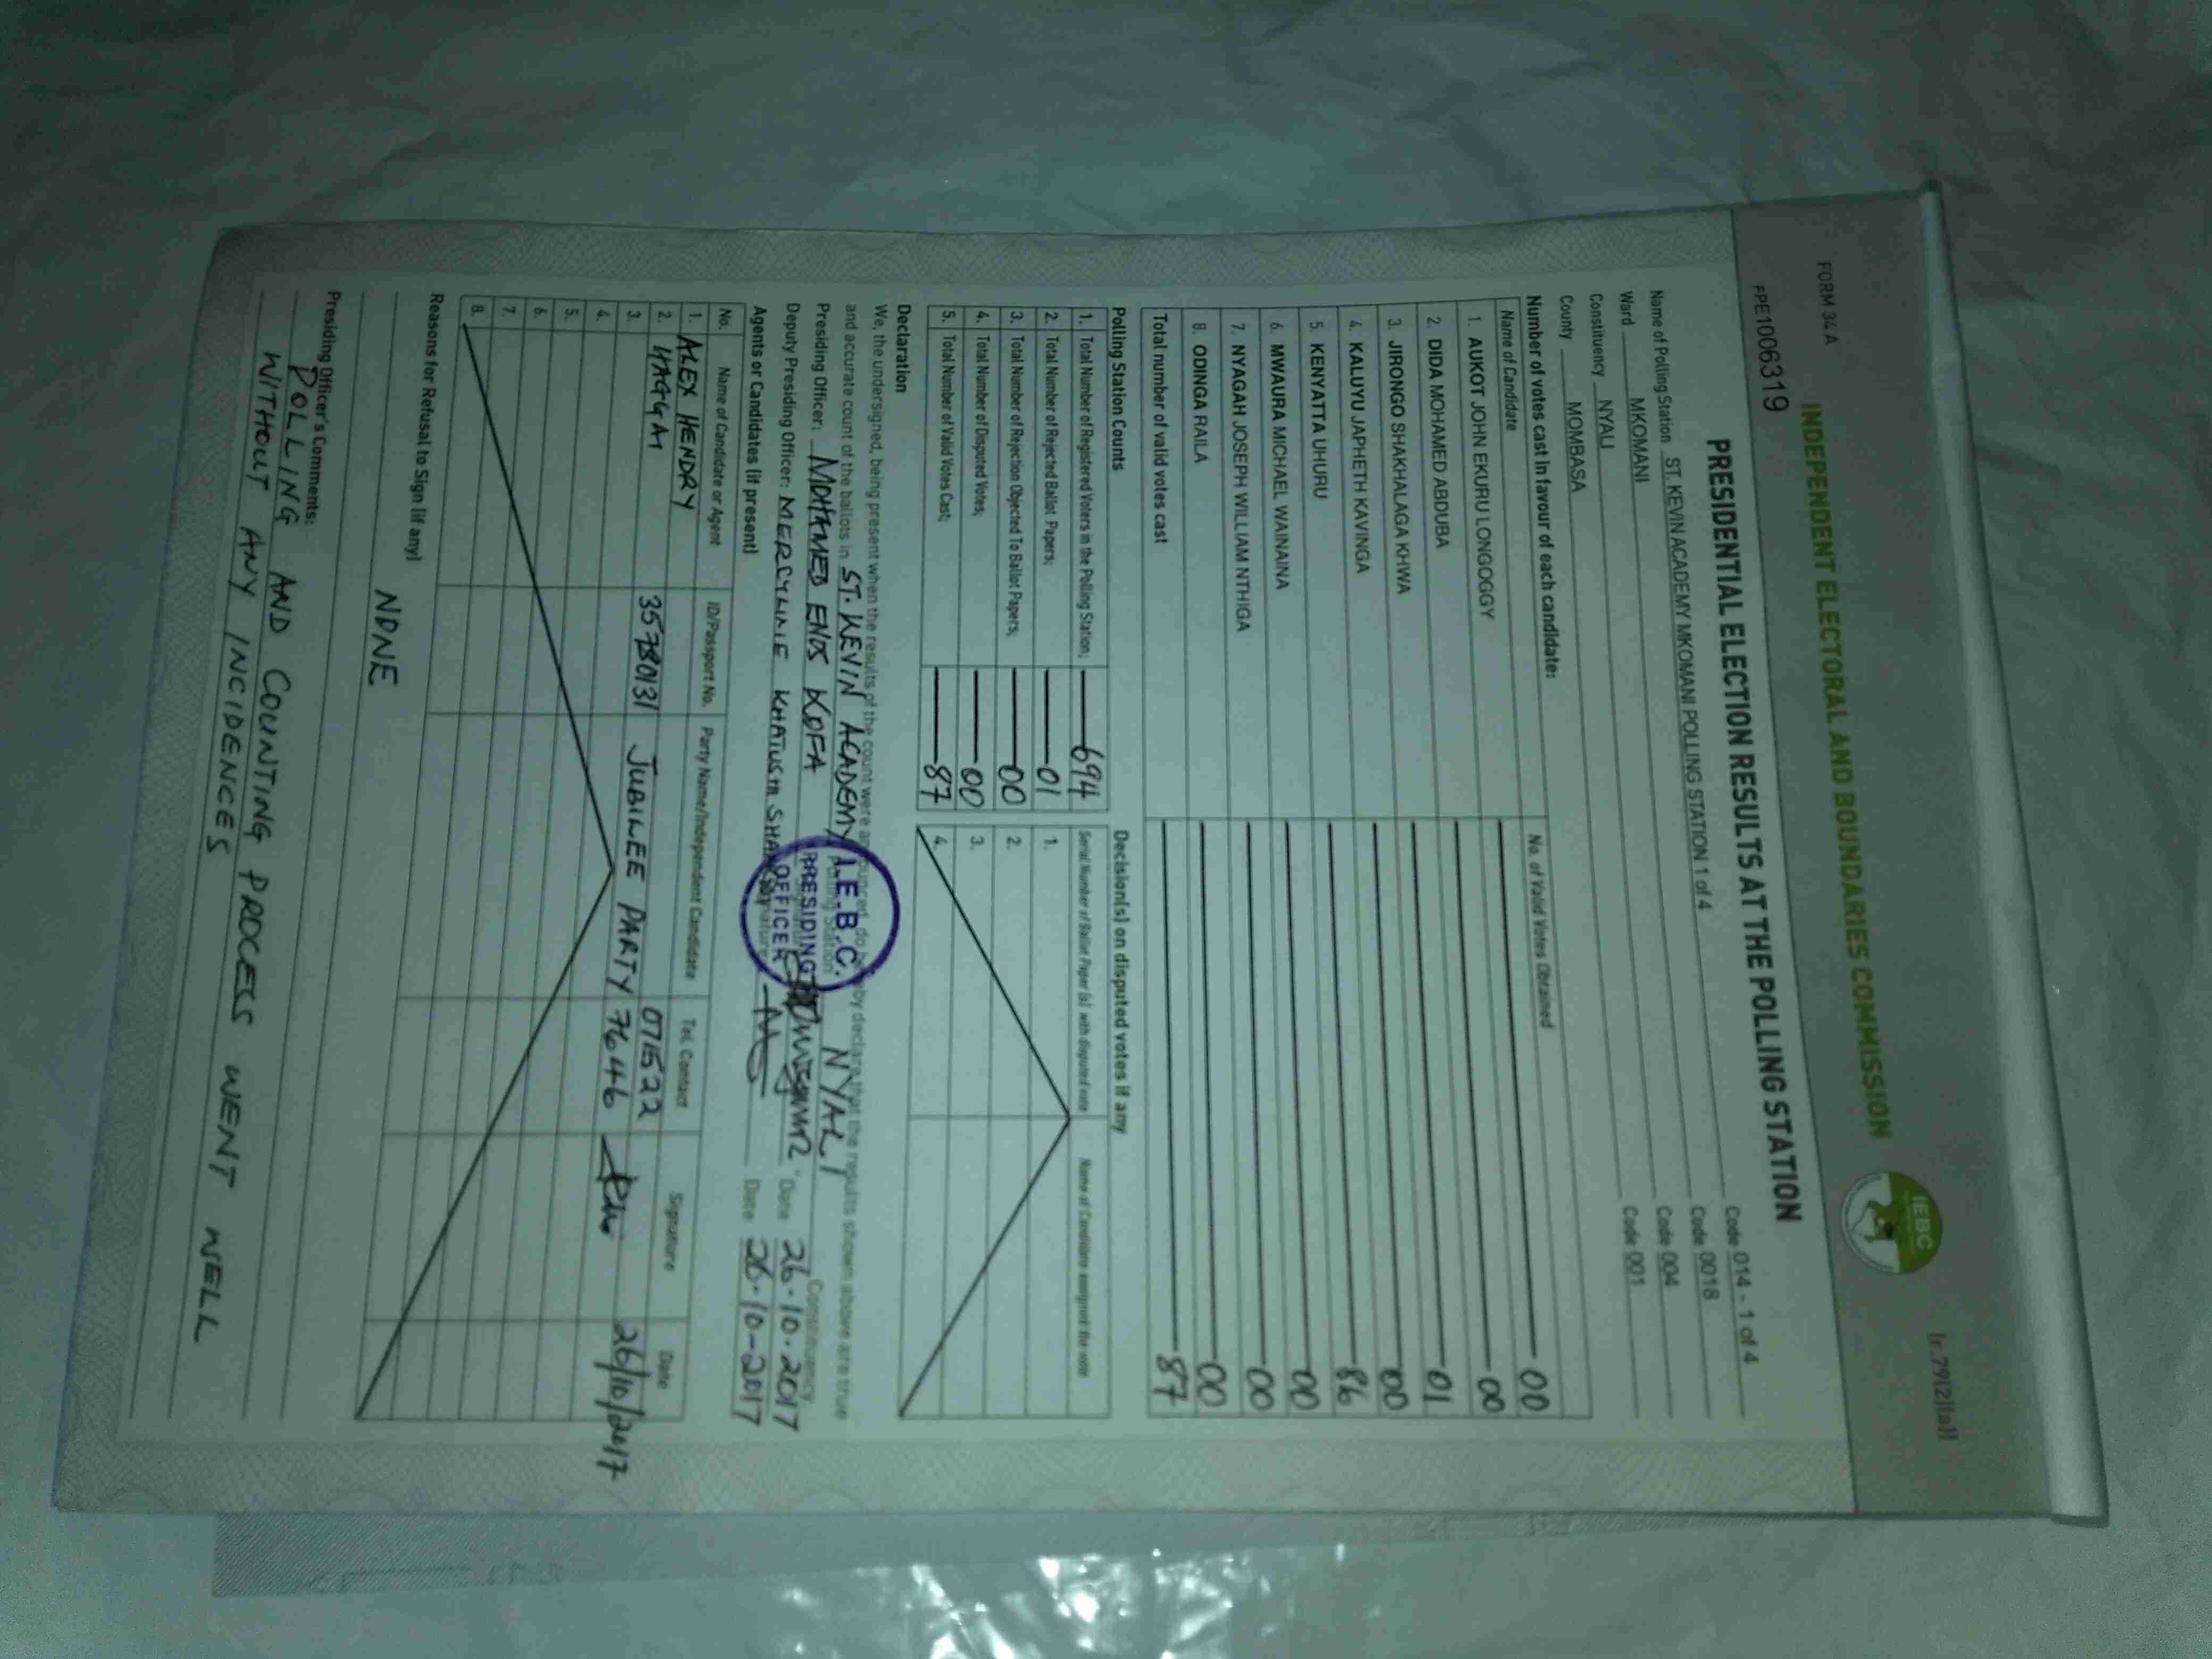 FORM 34A
INDEPENDENT ELECTORAL AND BOUNDARIES COMMISSION
IEBC
(r.79(2)(a))
FPE1006319
PRESIDENTIAL ELECTION RESULTS AT THE POLLING STATION
Name of Polling Station ST. KEVIN ACADEMY MKOMANI POLLING STATION 1 of 4 Code 014 - 1 of 4
Ward MKOMANI Code 0018
Constituency NYALI Code 004
County MOMBASA Code 001
Number of votes cast in favour of each candidate:
Name of Candidate No. of Valid Votes Obtained
1. AUKOT JOHN EKURU LONGOGGY 00
2. DIDA MOHAMED ABDUBA 00
3. JIRONGO SHAKHALAGA KHWA 01
4. KALUYU JAPHETH KAVINGA 00
5. KENYATTA UHURU 86
6. MWAURA MICHAEL WAINAINA 00
7. NYAGAH JOSEPH WILLIAM NTHIGA 00
8. ODINGA RAILA 00
Total number of valid votes cast 87
Polling Station Counts Decision(s) on disputed votes if any
1. Total Number of Registered Voters in the Polling Station; 694
2. Total Number of Rejected Ballot Papers; 01
3. Total Number of Rejection Objected To Ballot Papers; 00
4. Total Number of Disputed Votes; 00
5. Total Number of Valid Votes Cast; 87
Serial Number of Ballot Paper (s) with disputed vote Name of Candidate assigned the vote
1.
2.
3.
4.
Declaration
We, the undersigned, being present when the results of the count were announced, do hereby declare that the results shown above are true
and accurate count of the ballots in ST. KEVIN ACADEMY Polling Station NYALI Constituency
Presiding Officer: MOHAMED ENOS KOFA Date 26.10.2017
Deputy Presiding Officer: MERCYLINE Date 26-10-2017
I.E.B.C.
PRESIDING
OFFICER
Agents or Candidates (if present)
No. Name of Candidate or Agent ID/Passport No. Party Name/Independent Candidate Tel. Contact Signature Date
1. ALEX HENDRY 35780131 JUBILEE PARTY 071522 26/10/2017
2. HAGGAI 76446
3.
4.
5.
6.
7.
8.
Reasons for Refusal to Sign (if any)
NONE
Presiding Officer's Comments:
POLLING AND COUNTING PROCESS WENT WELL
WITHOUT ANY INCIDENCES